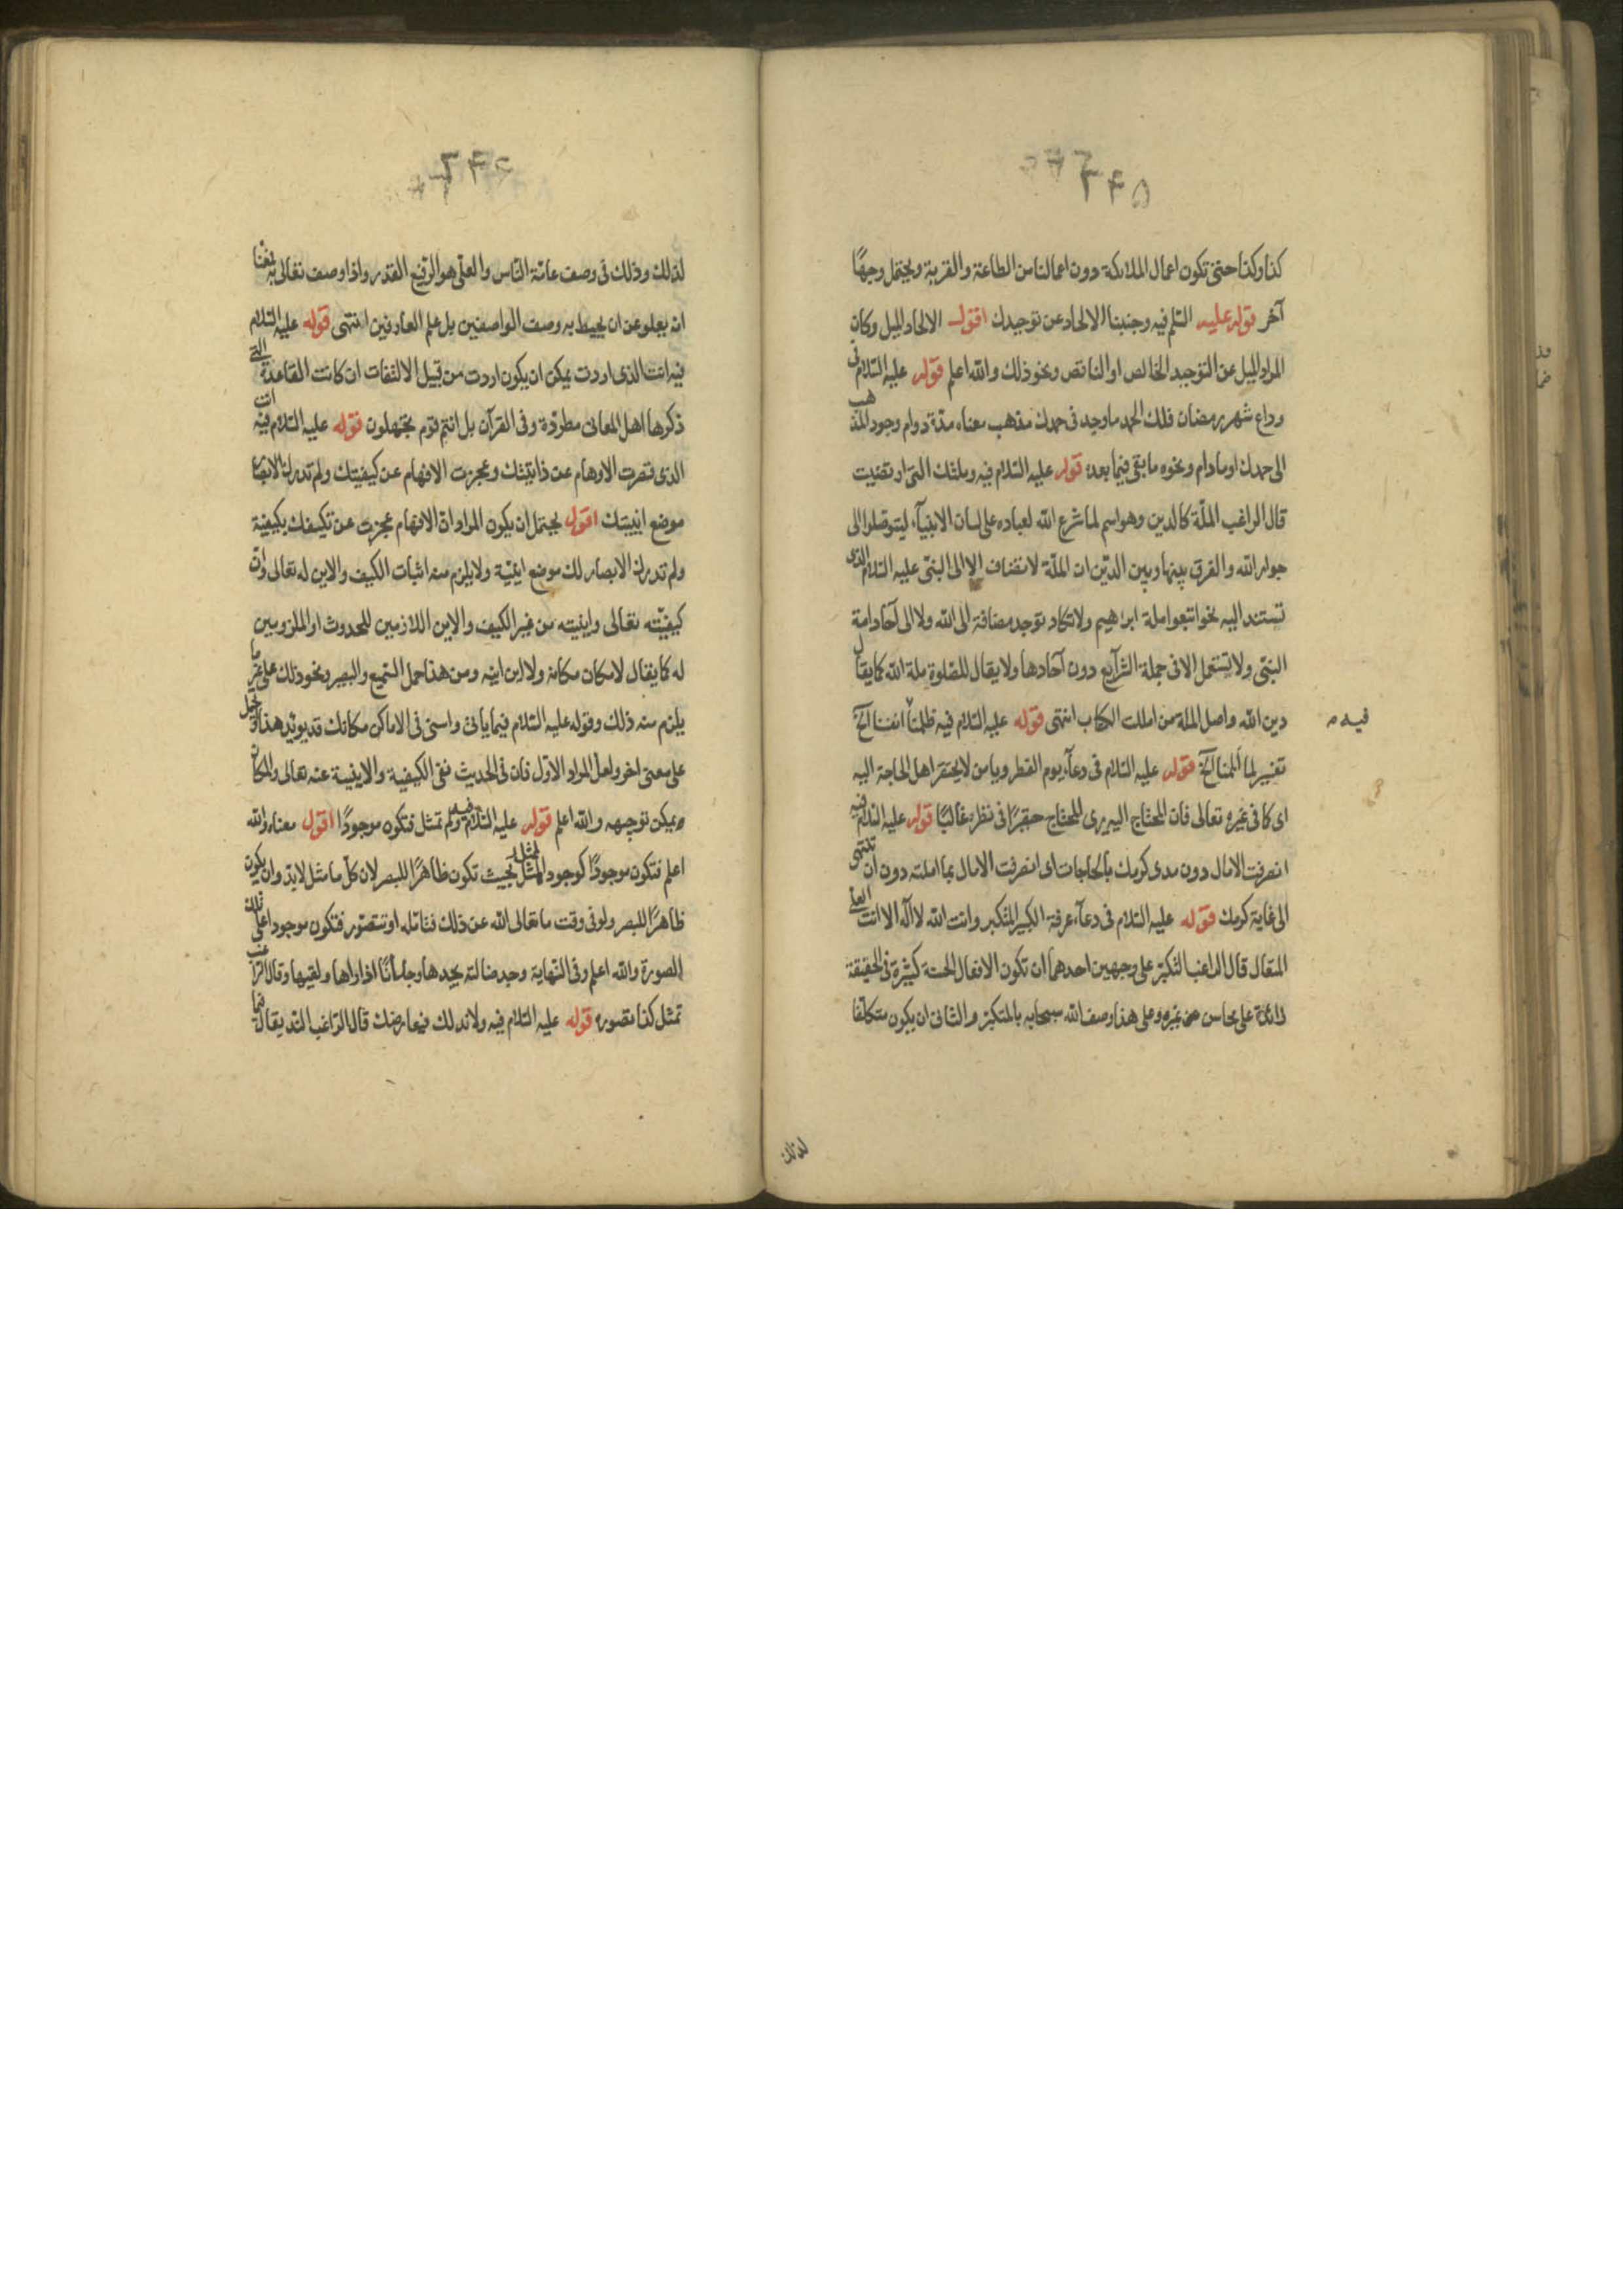 ٢٤٥
كذا وكذا حتى تكون اعمال الملائكة دون اعمالنا من الطاعة والقربة ويحتمل وجهًا
آخر قوله عليه السلم فيه وجنبنا الالحاد عن توحيدك اقول الالحاد الميل وكان
المراد الميل عن التوحيد الخالص او الناقص ونحو ذلك والله اعلم قوله عليه السّلام في
وداع شهر رمضان فلك الحمد ما وجد في حمدك مذهب معناه مدّة دوام وجود المذهب
الى حمدك او مادام ونحوه ما بقى فيما بعده قوله عليه السّلام فيه وملتك التى ارتضيت
قال الراغب الملّة كالدين وهو اسم لما شرع الله لعباده على لسان الانبيآء ليتوصّلوا الى
جوار الله والفرق بينها وبين الدّين ان الملّة لا تضاف الا الى النبىّ عليه السّلام الذى
تستند اليه نحو اتبعوا ملة ابراهيم ولا تكاد توجد مضافة الى الله ولا الى آحاد امة
النبىّ ولا تستعمل الا فى جملة الشرآيع دون آحادها ولا يقال للصّلوة ملة الله كما يقال
دين الله واصل الملة من امللت الكتاب انتهى قوله عليه السّلام فيه ظلمنا انفسنا آلخ
فيه م
تفسير لما ألمنا آلخ قوله عليه السّلام فى دعآء يوم الفطر ويا من لا يحتقر اهل الحاجة اليه
اى كما فى غيره تعالى فان المحتاج اليه يرى المحتاج حقيرًا فى نظره غالبًا قوله عليه السّلام فيه
انصرفت الامال دون مدى كرمك بالحاجات اى انصرفت الامال بما املته دون ان تنتهى
الى غاية كرمك قوله عليه السّلام فى دعآء عرفة الكبير المتكبر وانت الله لا اله الا انت العلى
المتعال قال الراغب التكبّر على وجهين احدهما ان تكون الافعال الحسنة كثيرة فى الحقيقة
زائدة على محاسن غيره وعلى هذا وصف الله سبحانه بالمتكبّر والثانى ان يكون متكلّفا
لذلك
٢٤٦
لذلك وذلك فى وصف عامّة النّاس والعلّى هو الرّفيع القدر واذا وصف تعالى به فمعناه
ان يعلو عن ان يحيط به وصف الواصفين بل علم العارفين انتهى قوله عليه السّلام
فيه انت الذى اردت يمكن ان يكون اردت من قبيل الالتفات ان كانت القاعدة التى
ذكرها اهل المعانى مطرّدة وفى القرآن بل انتم قوم تجهلون قوله عليه السّلام فيه انت
الذى قصرت الاوهام عن ذاتيّتك وعجزت الافهام عن كيفيتك ولم تدرك الابصار
موضع اينيتك اقول يحتمل ان يكون المراد انّ الافهام عجزت عن تكيفك بكيفية
ولم تدرك الابصار لك موضع اينيّة ولا يلزم منه اثبات الكيف والاين له تعالى وانّ
كيفيّته تعالى واينيته من غير الكيف والاين اللازمين للحدوث او الملزومين
له كما يقال لا مكان مكانه ولا اين اينه ومن هذا حمل السّميع والبصير ونحو ذلك على غير ما
يلزم منه ذلك وقوله عليه السّلام فيما ياتى واسنى فى الاماكن مكانك قد يؤيّد هذا
على معنى اخر ولعلّ المراد الاوّل فان فى الحديث نفى الكيفية والاينية عنه تعالى والمكان
ويمكن توجيهه والله اعلم قوله عليه السّلام فيه ولم تمثل فتكون موجودًا اقول معناه والله
اعلم فتكون موجودًا كوجود المثل بحيث تكون ظاهرًا للبصر لان كلّ ما مثل لابدّ وان يكون
ظاهرًا للبصر ولو فى وقت ما تعالى الله عن ذلك فتامّله او تتصوّر فتكون موجودا على تلك
الصورة والله اعلم وفى النّهاية وجد ضالته يجدها وجدانًا اذا راها ولقيها وقال الراغب
تمثل كذا تصوره قوله عليه السّلام فيه ولا ند لك فيعارضك قال الرّاغب الند يقال فيما